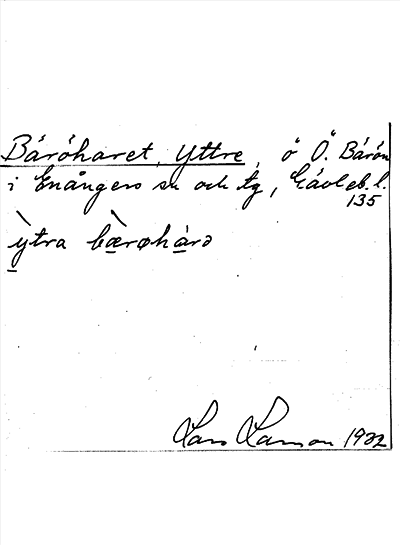 Bäröharet, Yttre, ö Ö. Bärön
i Enångers sn och tg, Gävleb. l.
135
ỳ̱tra bæ̱̀røhá̱rə
Lars Larsson 1932